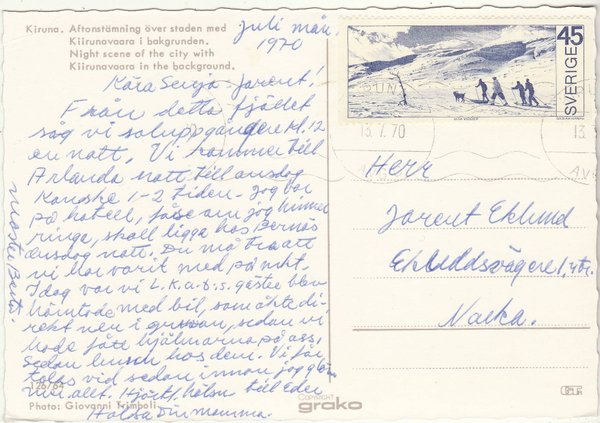 Kiruna. Aftonstämning över staden med
Kiirunavaara i bakgrunden.
Night scene of the city with
Kiirunavaara in the background.
Juli mån.
1970
Kära Jarent!
Från detta fjället
såg vi soluppgången kl. 12
en natt. Vi kommer till
Arlanda natt till onsdag
Kanske 1-2 tiden - jag bor
på hotell, får se om jag hinner
ringa, skall ligga hos
onsdag natt. Du må tro att
vi har varit med på mkt.
I dag var vi L.K.A.B.s. gäster blev
hämtade med bil, som åkte di-
rekt ner i gruvan, sedan vi
hade fått hjälmarna på oss,
Sedan lunch hos dem. Vi får
talas vid sedan innan jag glöm-
mer allt. Hjärtl. hälsn till Eder
Din mamma.
moster
SVERIGE 45
13.7.70
13.
Herr
Jarent Eklund
Ekuddsvägen 1, 4tr.
Nacka.
126/64
Photo: Giovanni Trimboli
COPYRIGHT
grako